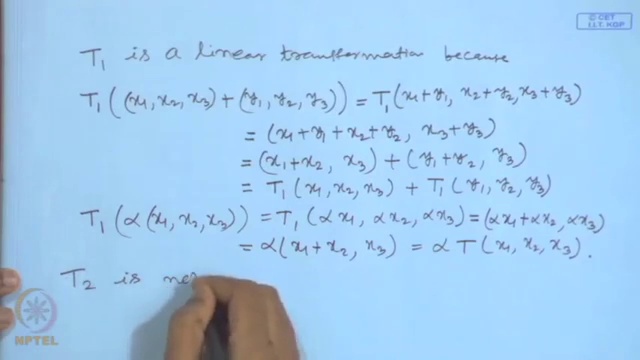 © CET
I.I.T. KGP
T₁ is a linear transformation because
T₁((x₁, x₂, x₃) + (y₁, y₂, y₃)) = T₁(x₁+y₁, x₂+y₂, x₃+y₃)
= (x₁+y₁+x₂+y₂, x₃+y₃)
= (x₁+x₂, x₃) + (y₁+y₂, y₃)
= T₁(x₁, x₂, x₃) + T₁(y₁, y₂, y₃)
T₁(α(x₁, x₂, x₃)) = T₁(αx₁, αx₂, αx₃) = (αx₁+αx₂, αx₃)
= α(x₁+x₂, x₃) = αT(x₁, x₂, x₃).
T₂ is
NPTEL